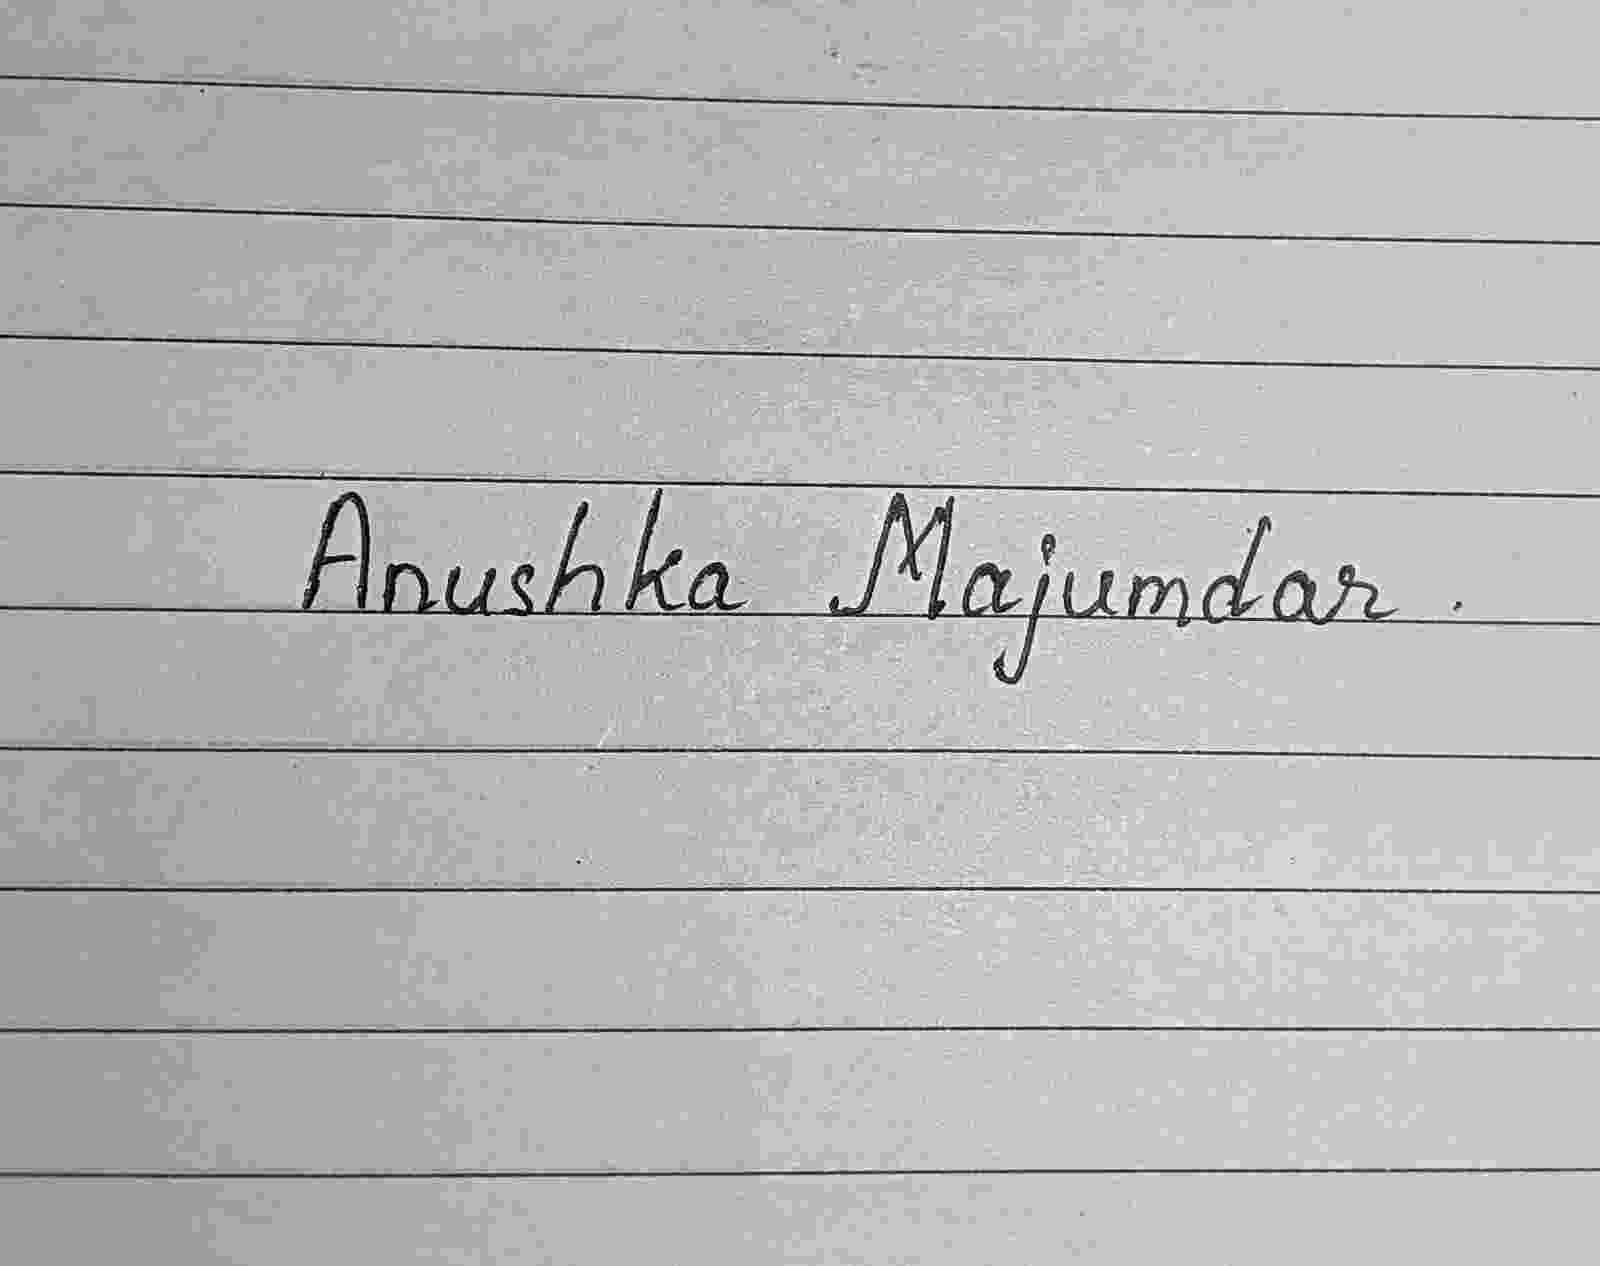 Anushka Majumdar.